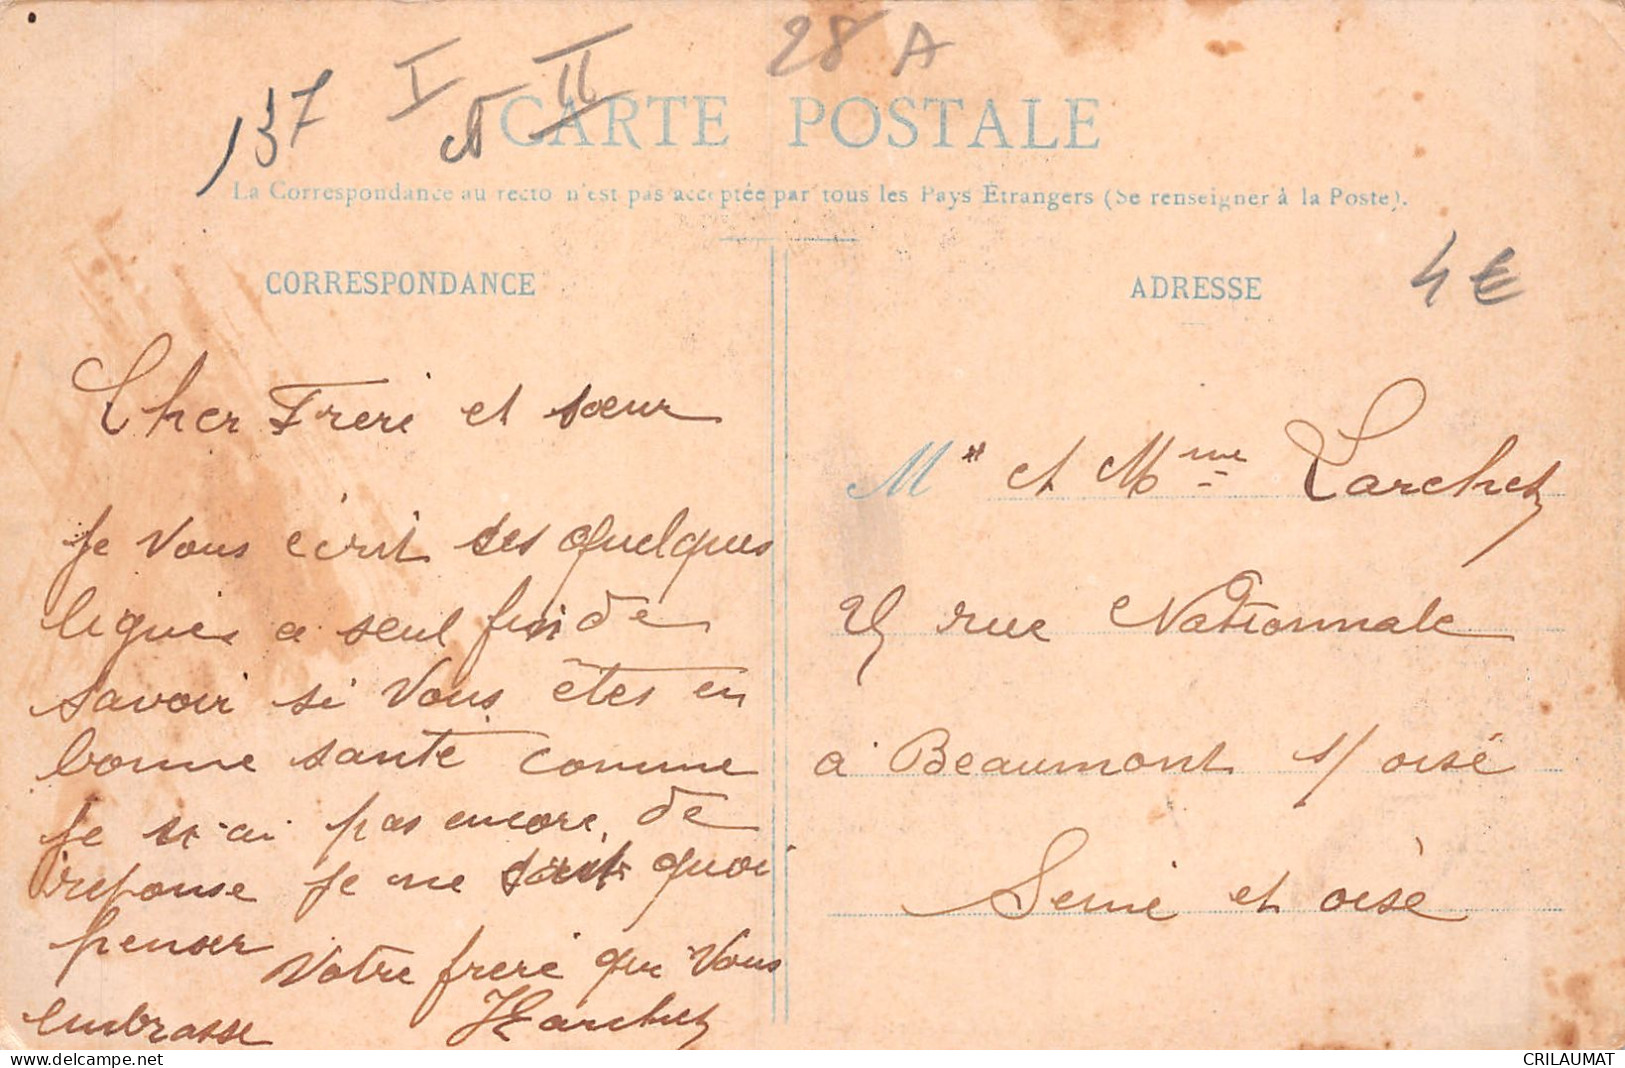 28 A
137 I II
CARTE POSTALE
La Correspondance au recto n'est pas acceptée par tous les Pays Étrangers (Se renseigner à la Poste).
CORRESPONDANCE
Cher Frere et sœur
Je vous écrit ses quelques
lignes a seul fin de
savoir si vous êtes en
bonne santé comme
je n'ai pas encore de
reponse je ne sait quoi
penser
Votre frere qui vous
embrasse Larchet
ADRESSE
4 €
Mr et Mme Larchet
25 rue Nationnale
à Beaumont s/ oise
Seine et oise
delcampe.net
CRILAUMAT